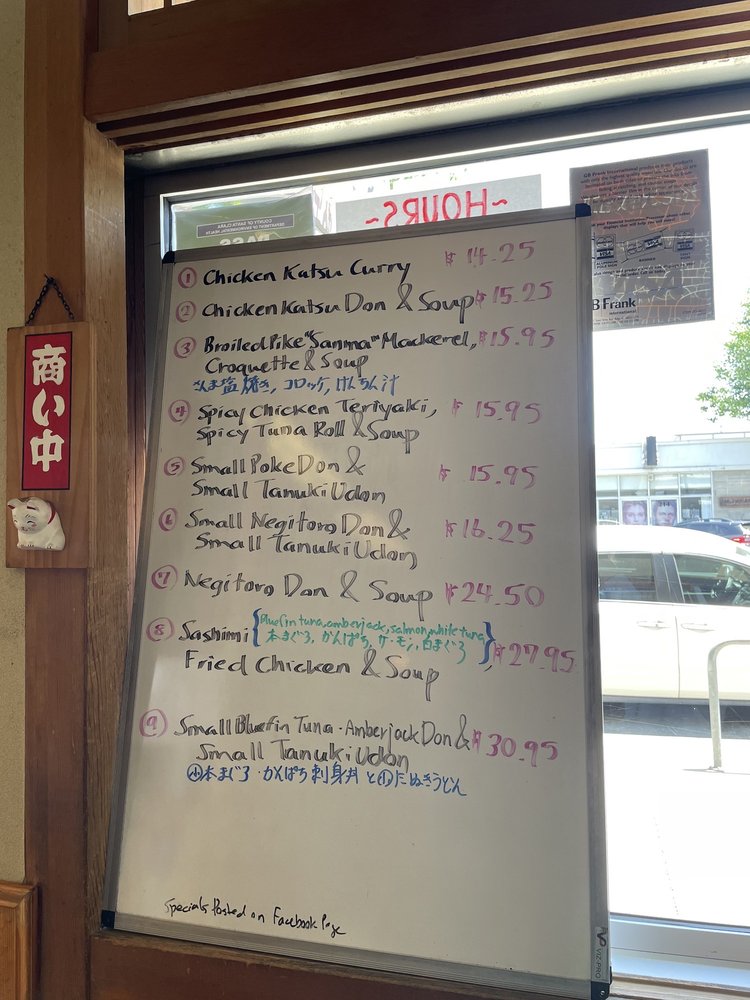 COUNTY OF SANTA CLARA
DEPARTMENT OF ENVIRONMENTAL HEALTH
PASS
~HOURS~
GB Frank
International
商い中
① Chicken Katsu Curry $14.25
② Chicken Katsu Don & Soup $15.25
③ Broiled Pike "Sanma" Mackerel, $15.95
Croquette & Soup
さんま塩焼き, コロッケ, けんちん汁
④ Spicy Chicken Teriyaki, $15.95
Spicy Tuna Roll & Soup
⑤ Small Poke Don & $15.95
Small Tanuki Udon
⑥ Small Negitoro Don & $16.25
Small Tanuki Udon
⑦ Negitoro Don & Soup $24.50
⑧ Sashimi {bluefin tuna, amberjack, salmon, white tuna}, $27.95
本まぐろ, かんぱち, サーモン, 白まぐろ
Fried Chicken & Soup
⑨ Small Bluefin Tuna・Amberjack Don & $30.95
Small Tanuki Udon
㊙本まぐろ・かんぱち刺身丼と㊙たぬきうどん
Specials Posted on Facebook Page
VIZ-PRO